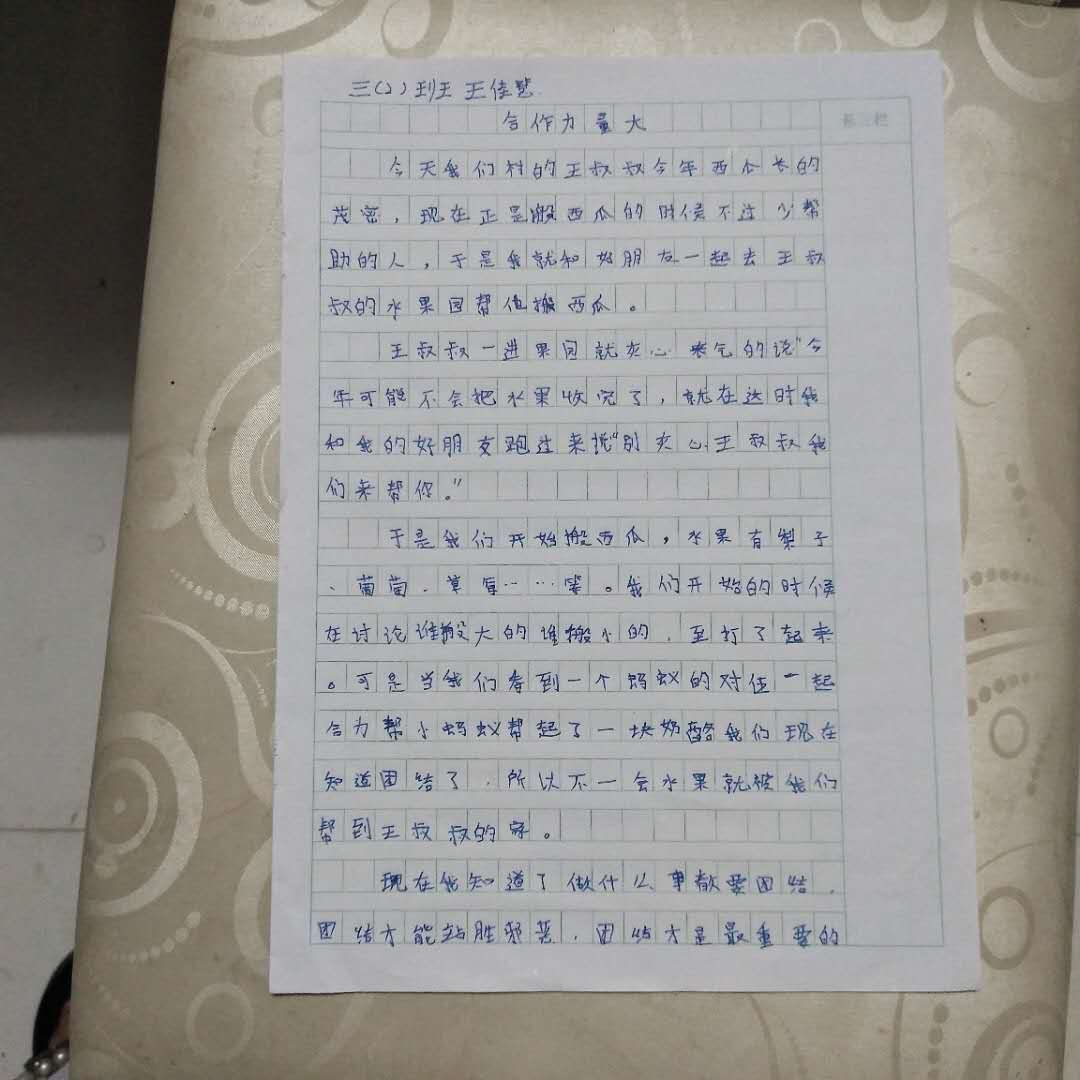 三(2)班 王佳
合作力量大
今天我们村的王叔叔今年西瓜长的
茂密，现在正是搬西瓜的时候不过少帮
助的人，于是我就和好朋友一起去王叔
叔的水果园帮他搬西瓜。
王叔叔一进果园就灰心丧气的说“今
年可能不会把水果收完了，就在这时我
和我的好朋友跑过来说“别灰心王叔叔我
们来帮你。”
于是我们开始搬西瓜，水果有梨子
、葡萄、草莓……等。我们开始的时候
在讨论谁搬大的谁搬小的，至打了起来
。可是当我们看到一个蚂蚁的对伍一起
合力帮小蚂蚁帮起了一块奶酪我们现在
知道团结了，所以不一会水果就被我们
帮到王叔叔的家。
现在我知道了做什么事都要团结，
团结才能站胜邪恶，团结才是最重要的